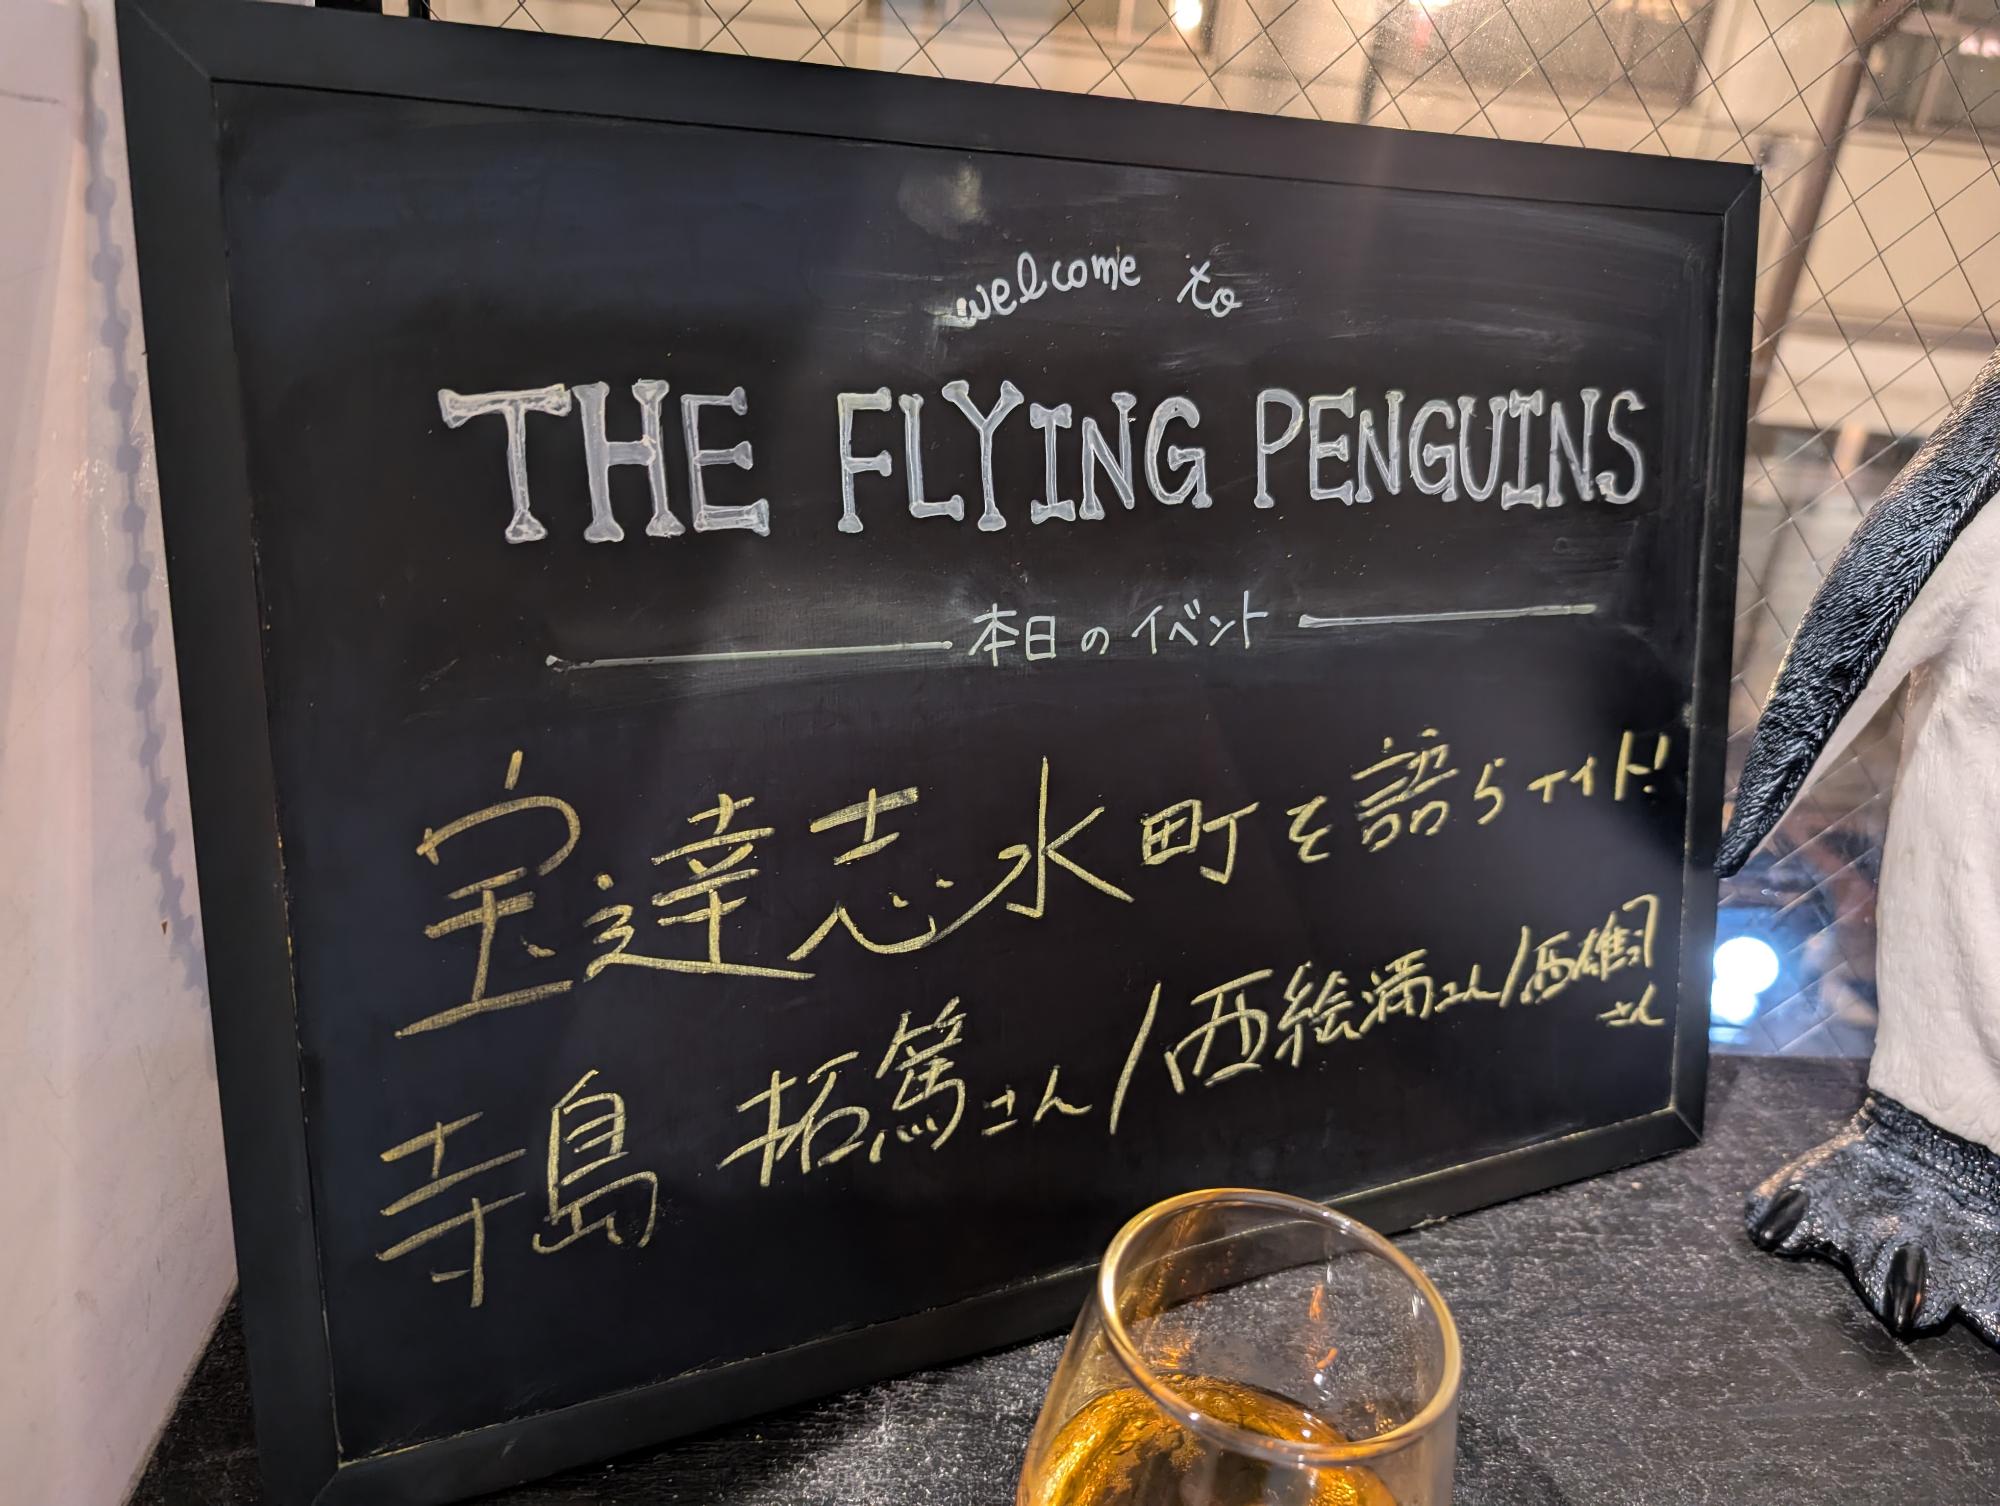 welcome to
THE FLYING PENGUINS
本日のイベント
宝達志水町を語らナイト!
寺島 拓篤さん/西絵満さん/西雄司さん